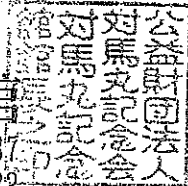 公益財団法人
対馬丸記念会
対馬丸記念
館館長之印